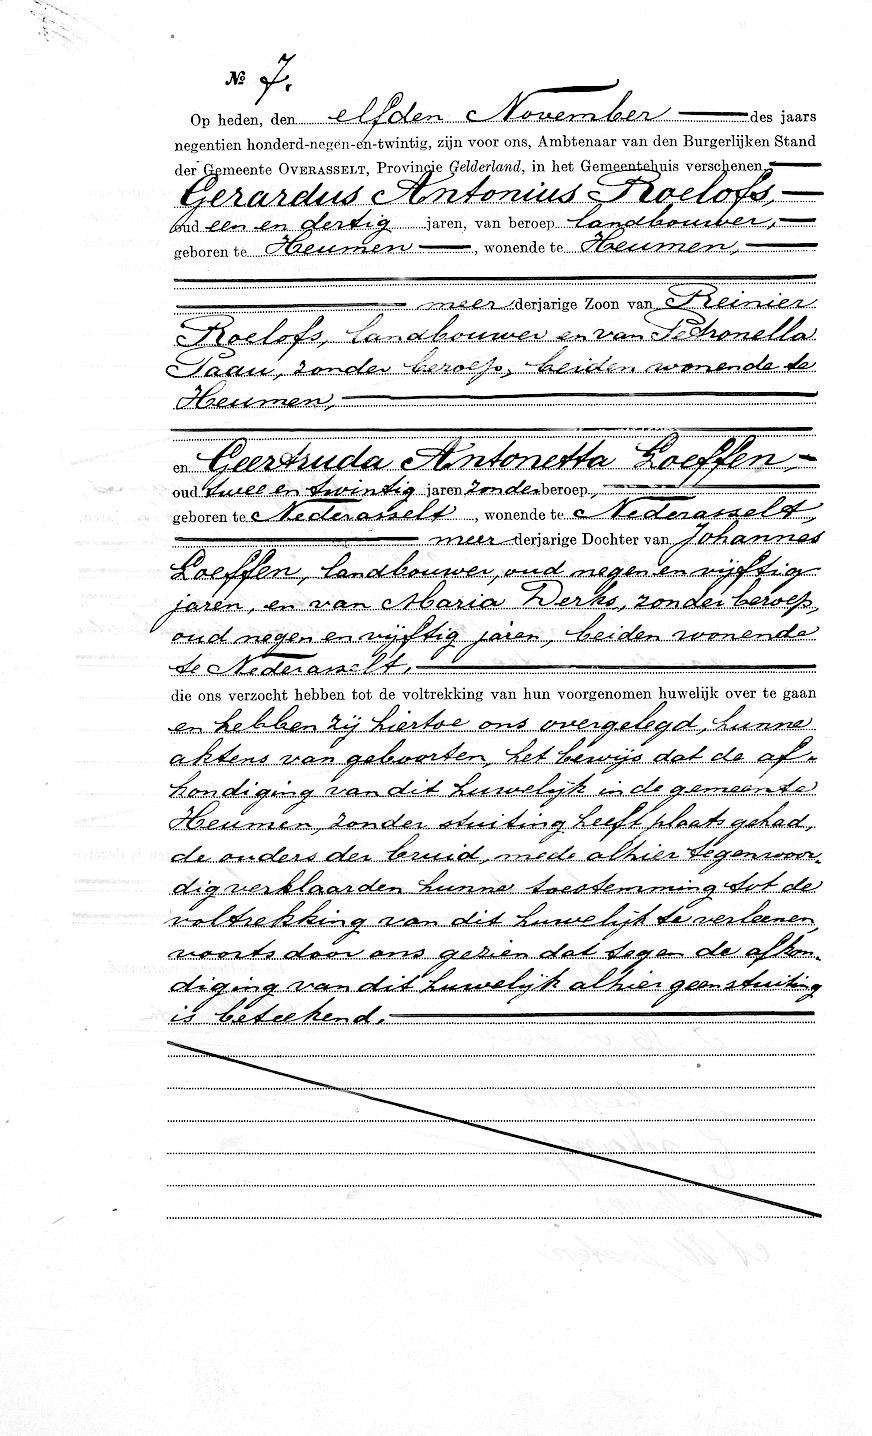 № 7.
Op heden, den elfden November des jaars
negentien honderd-negen-en-twintig, zijn voor ons, Ambtenaar van den Burgerlijken Stand
der Gemeente OVERASSELT, Provincie Gelderland, in het Gemeentehuis verschenen,
Gerardus Antonius Roelofs,
oud een en dertig jaren, van beroep landbouwer,
geboren te Heumen, wonende te Heumen,
meerderjarige Zoon van Reinier
Roelofs, landbouwer en van Petronella
Paau, zonder beroep, beiden wonende te
Heumen,
en Geertruda Antonetta Loeffen,
oud twee en twintig jaren zonder beroep,
geboren te Nederasselt, wonende te Nederasselt,
meerderjarige Dochter van Johannes
Loeffen, landbouwer, oud negen en vijftig
jaren, en van Maria Derks, zonder beroep,
oud negen en vijftig jaren, beiden wonende
te Nederasselt,
die ons verzocht hebben tot de voltrekking van hun voorgenomen huwelijk over te gaan
en hebben zij hiertoe ons overgelegd, hunne
aktens van geboorten, het bewijs dat de af-
kondiging van dit huwelijk in de gemeente
Heumen, zonder stuiting heeft plaats gehad,
de ouders der bruid, mede alhier tegenwoor-
dig verklaarden hunne toestemming tot de
voltrekking van dit huwelijk te verleenen,
voorts door ons gezien dat tegen de afkon-
diging van dit huwelijk alhier geen stuiting
is beteekend.